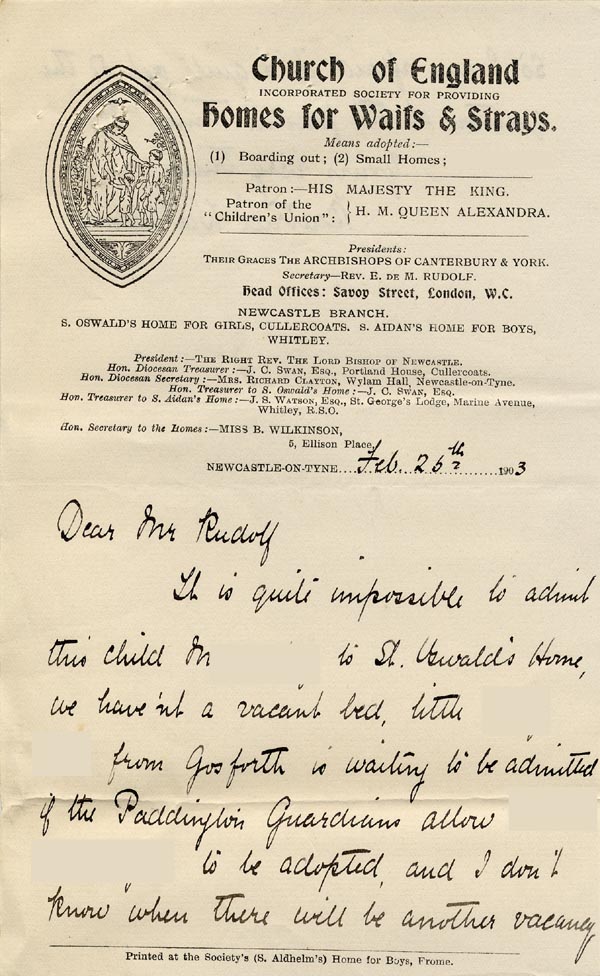 Church of England
INCORPORATED SOCIETY FOR PROVIDING
Homes for Waifs & Strays.
Means adopted:—
(1) Boarding out; (2) Small Homes;
Patron:—HIS MAJESTY THE KING.
Patron of the
"Children's Union": { H. M. QUEEN ALEXANDRA.
Presidents:
THEIR GRACES THE ARCHBISHOPS OF CANTERBURY & YORK.
Secretary—REV. E. DE M. RUDOLF.
Head Offices: Savoy Street, London, W.C.
NEWCASTLE BRANCH.
S. OSWALD'S HOME FOR GIRLS, CULLERCOATS. S. AIDAN'S HOME FOR BOYS,
WHITLEY.
President:—THE RIGHT REV. THE LORD BISHOP OF NEWCASTLE.
Hon. Diocesan Treasurer:—J. C. SWAN, ESQ., Portland House, Cullercoats.
Hon. Diocesan Secretary:—MRS. RICHARD CLAYTON, Wylam Hall, Newcastle-on-Tyne.
Hon. Treasurer to S. Oswald's Home:—J. C. SWAN, ESQ.
Hon. Treasurer to S. Aidan's Home:—J. S. WATSON, ESQ., St. George's Lodge, Marine Avenue,
Whitley, R.S.O.
Hon. Secretary to the Homes:—MISS B. WILKINSON,
5, Ellison Place,
NEWCASTLE-ON-TYNE....Feb. 26th........1903
Dear Mr Rudolf
It is quite impossible to admit
this child M to St. Oswald's Home,
we have'nt a vacant bed, little
from Gosforth is waiting to be admitted
if the Paddington Guardians allow
to be adopted, and I don't
know when there will be another vacancy
Printed at the Society's (S. Aldhelm's) Home for Boys, Frome.